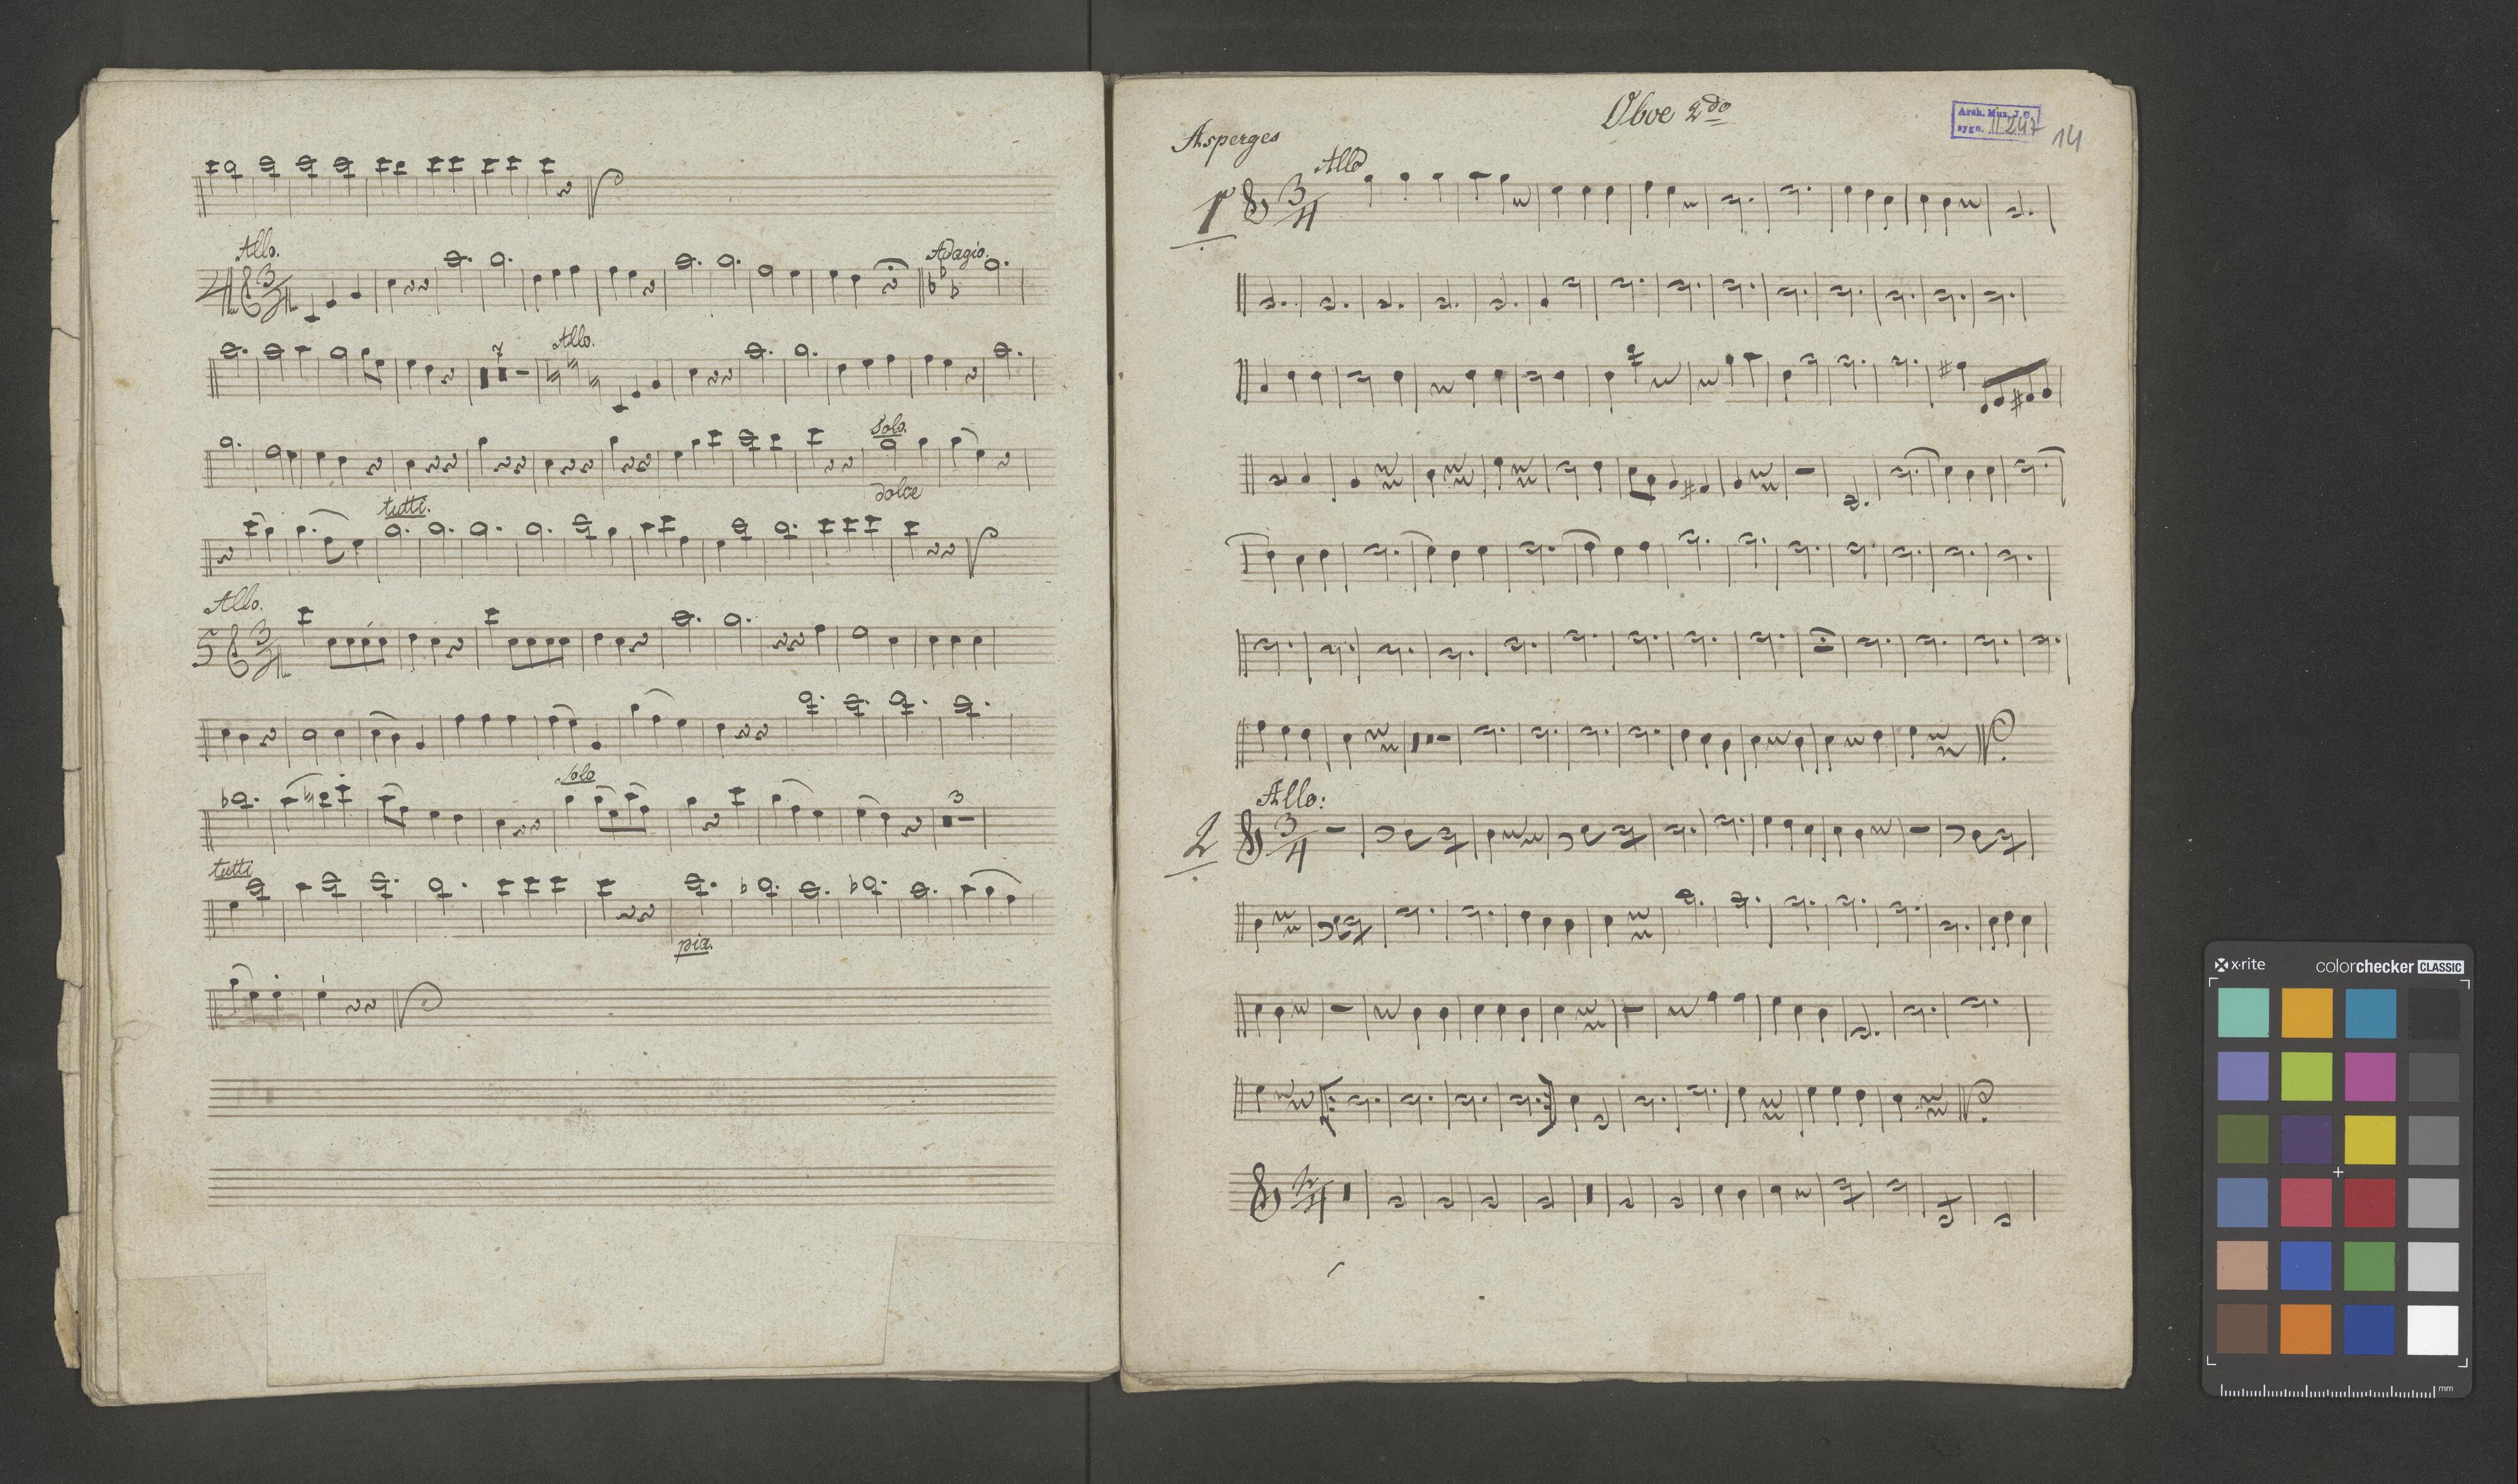 Allo.
Adagio.
4 3/4
7
Allo.
Solo.
dolce
tutti.
Allo.
5 3/4
Solo
3
tutti
pia.
Oboe 2do
Arch. Muz. J. G.
sygn. II 247
14
Asperges
Allo
1 3/4
Allo:
2 3/4
x·rite
colorchecker CLASSIC
mm